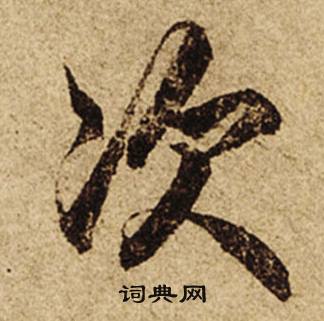 次
词典网